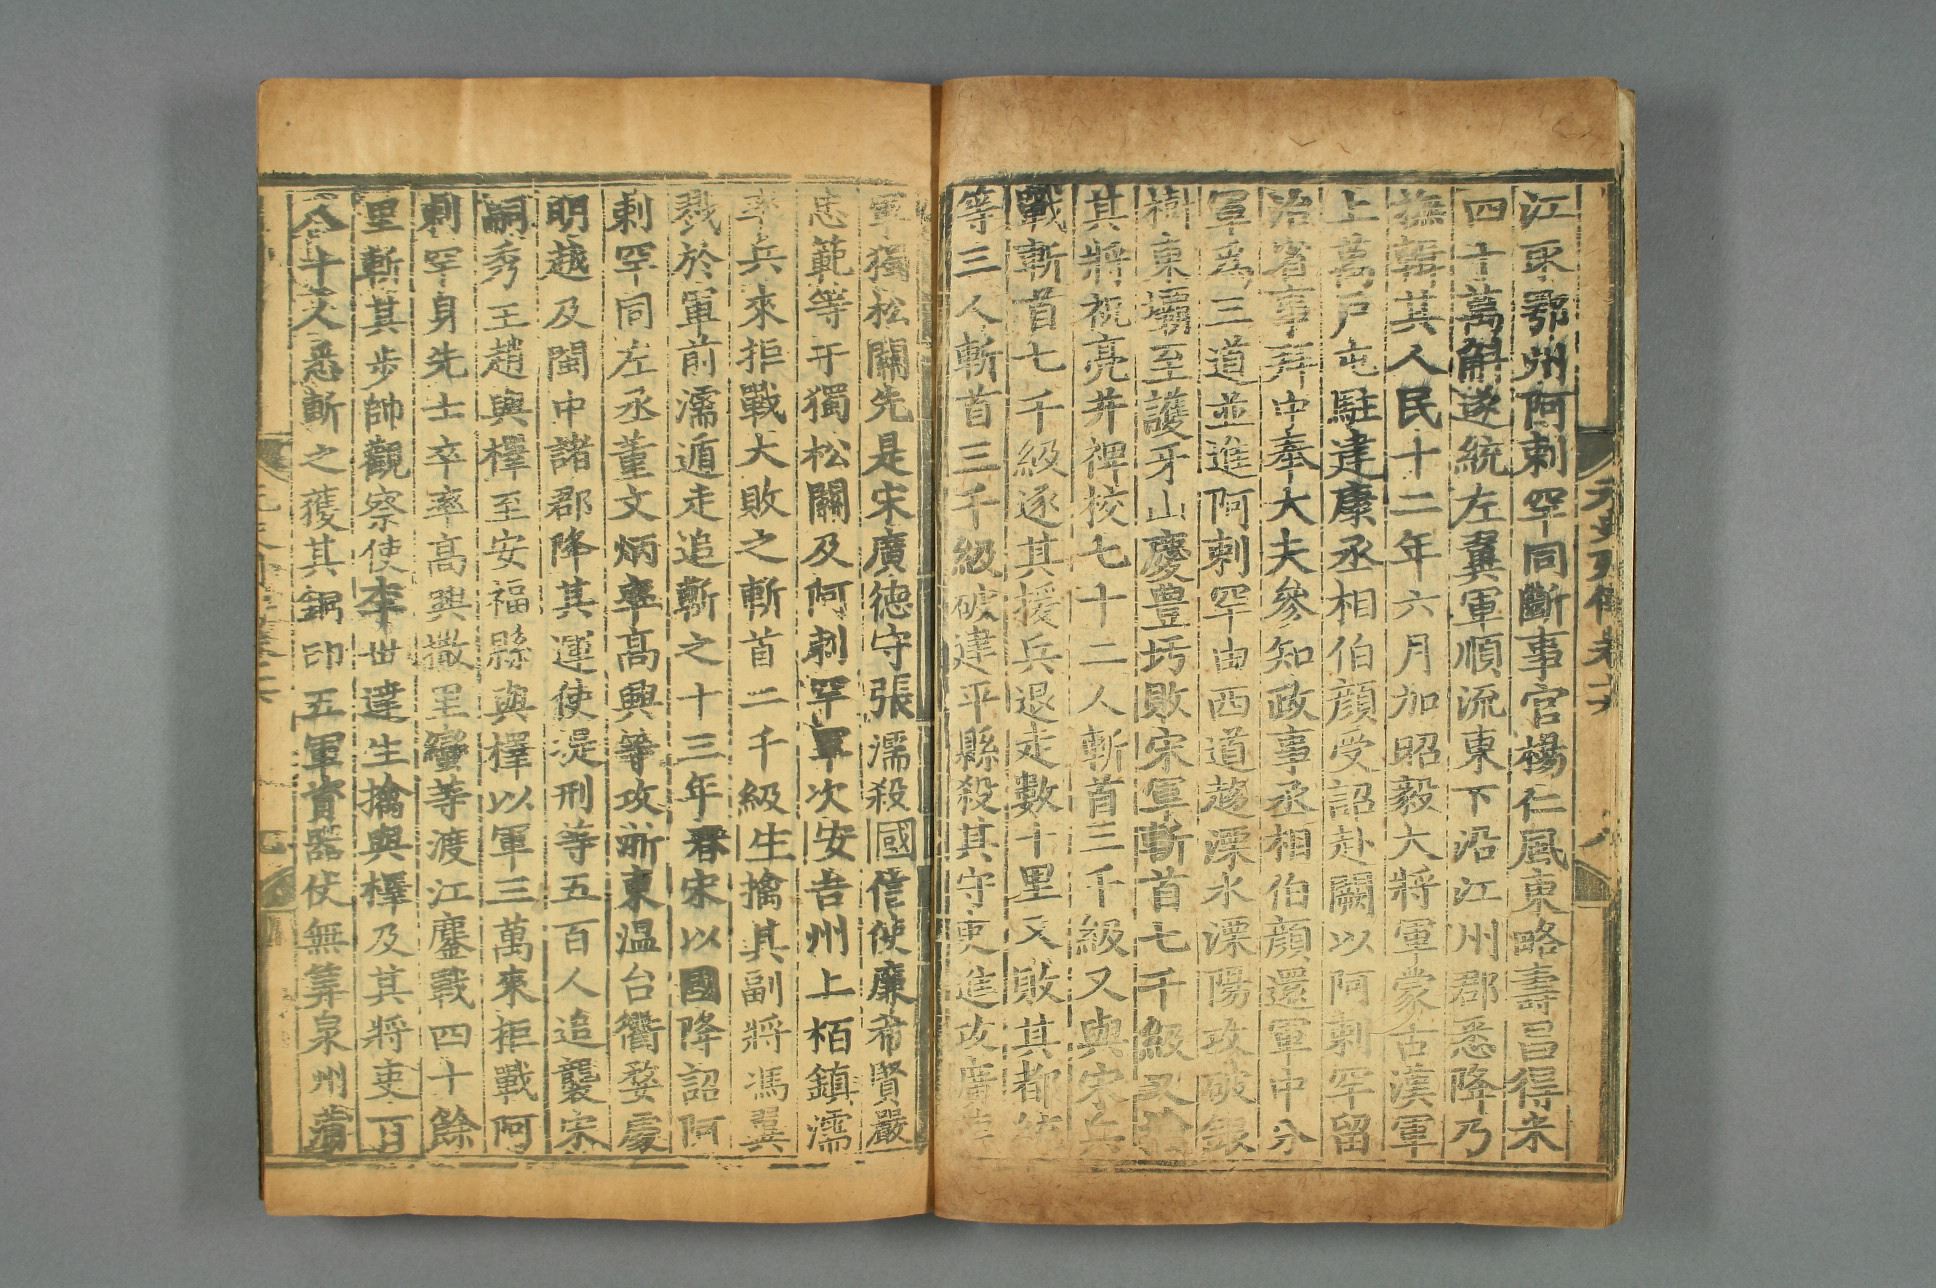 元史列傳卷十六
八
江取鄂州阿剌罕同斷事官楊仁風東略壽昌得米
四十萬斛遂統左翼軍順流東下沿江州郡悉降乃
撫輯其人民十二年六月加昭毅大將軍蒙古漢軍
上萬戶屯駐建康丞相伯顏受詔赴闕以阿剌罕留
治省事拜中奉大夫參知政事丞相伯顏還軍中分
軍爲三道並進阿剌罕由西道趨溧水溧陽攻破銀
樹東壩至護牙山慶豊圬敗宋軍斬首七千級又
其將祝亮并裨校七十二人斬首三千級又與宋兵
戰斬首七千級逐其援兵退走數十里又敗其都統
等三人斬首三千級破建平縣殺其守吏進攻廣德
軍獨松關先是宋廣德守張濡殺國信使廉希賢嚴
忠範等于獨松關及阿剌罕軍次安吉州上栢鎮濡
率兵來拒戰大敗之斬首二千級生擒其副將馮翼
戮於軍前濡遁走追斬之十三年春宋以國降詔阿
剌罕同左丞董文炳率高興等攻浙東温台衢婺處
明越及閩中諸郡降其運使提刑等五百人追襲宋
嗣秀王趙與檡至安福縣與檡以軍三萬來拒戰阿
剌罕身先士卒率高興撒里蠻等渡江鏖戰四十餘
里斬其步帥觀察使李世達生擒與檡及其將吏百
八十人悉斬之獲其銅印五軍資器仗無筭泉州蒲